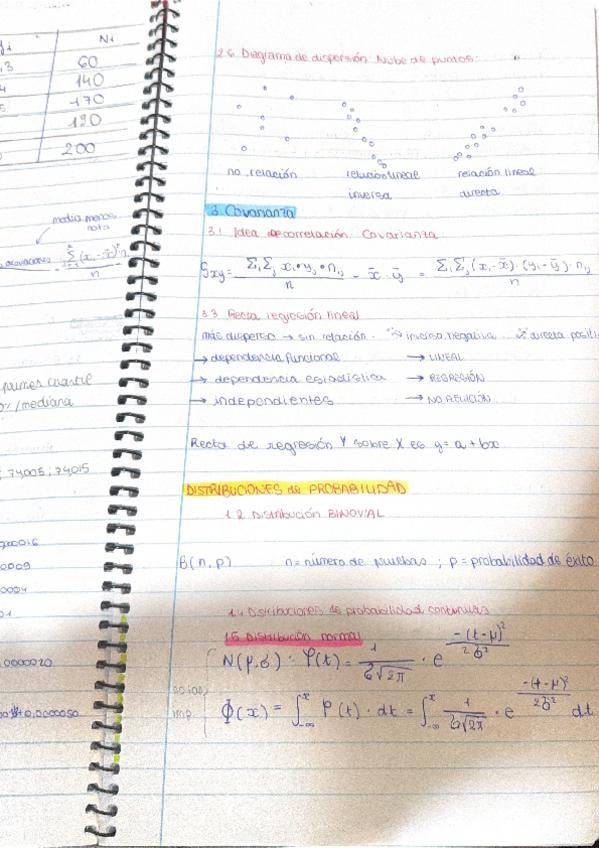 Ni
60
140
170
120
200
media menos
nota
n
/mediana
74005; 74015
2.6 Diagrama de dispersión Nube de puntos:
no relación
relación lineal
inversa
relación lineal
directa
3. Covarianza
3.1 Idea de correlación. Covarianza
Sxy = Σi Σj xi · yj · nij / n - x̄ · ȳ = Σi Σj (xi - x̄) · (yj - ȳ) · nij / n
3.3 Recta regresión lineal
más disperso → sin relación. inversa negativa directa positi
→ dependencia funcional → LINEAL
→ dependencia estadística → REGRESIÓN
→ independientes → NO RELACIÓN
Recta de regresión Y sobre X es y = a + bx
DISTRIBUCIONES de PROBABILIDAD
1.2 Distribución BINOMIAL
B(n,p) n = número de pruebas ; p = probabilidad de éxito
1.4 Distribuciones de probabilidad continuas
1.5 Distribución normal
N(μ,σ) : φ(t) = 1 / σ√2π · e^(-(t-μ)² / 2σ²)
Φ(x) = ∫_-∞^x φ(t) · dt = ∫_-∞^x 1 / σ√2π · e^(-(t-μ)² / 2σ²) dt